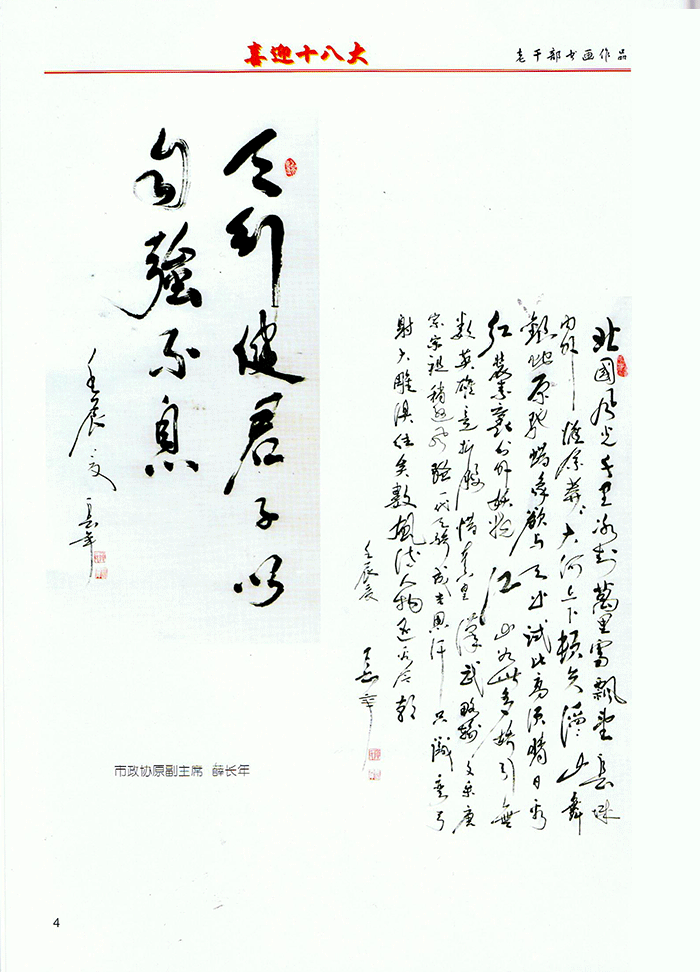 喜迎十八大
老干部书画作品
天行健君子以
自强不息
壬辰夏 长年
北国风光千里冰封萬里雪飘望長城
内外惟余莽莽大河上下顿失滔滔山舞
银蛇原驰蜡象欲与天公试比高须晴日看
红装素裹分外妖娆江山如此多娇引無
数英雄竞折腰惜秦皇漢武略输文采唐
宗宋祖稍逊风骚一代天骄成吉思汗只識弯弓
射大雕俱往矣数風流人物还看今朝
壬辰夏 長年
市政协原副主席 薛长年
4